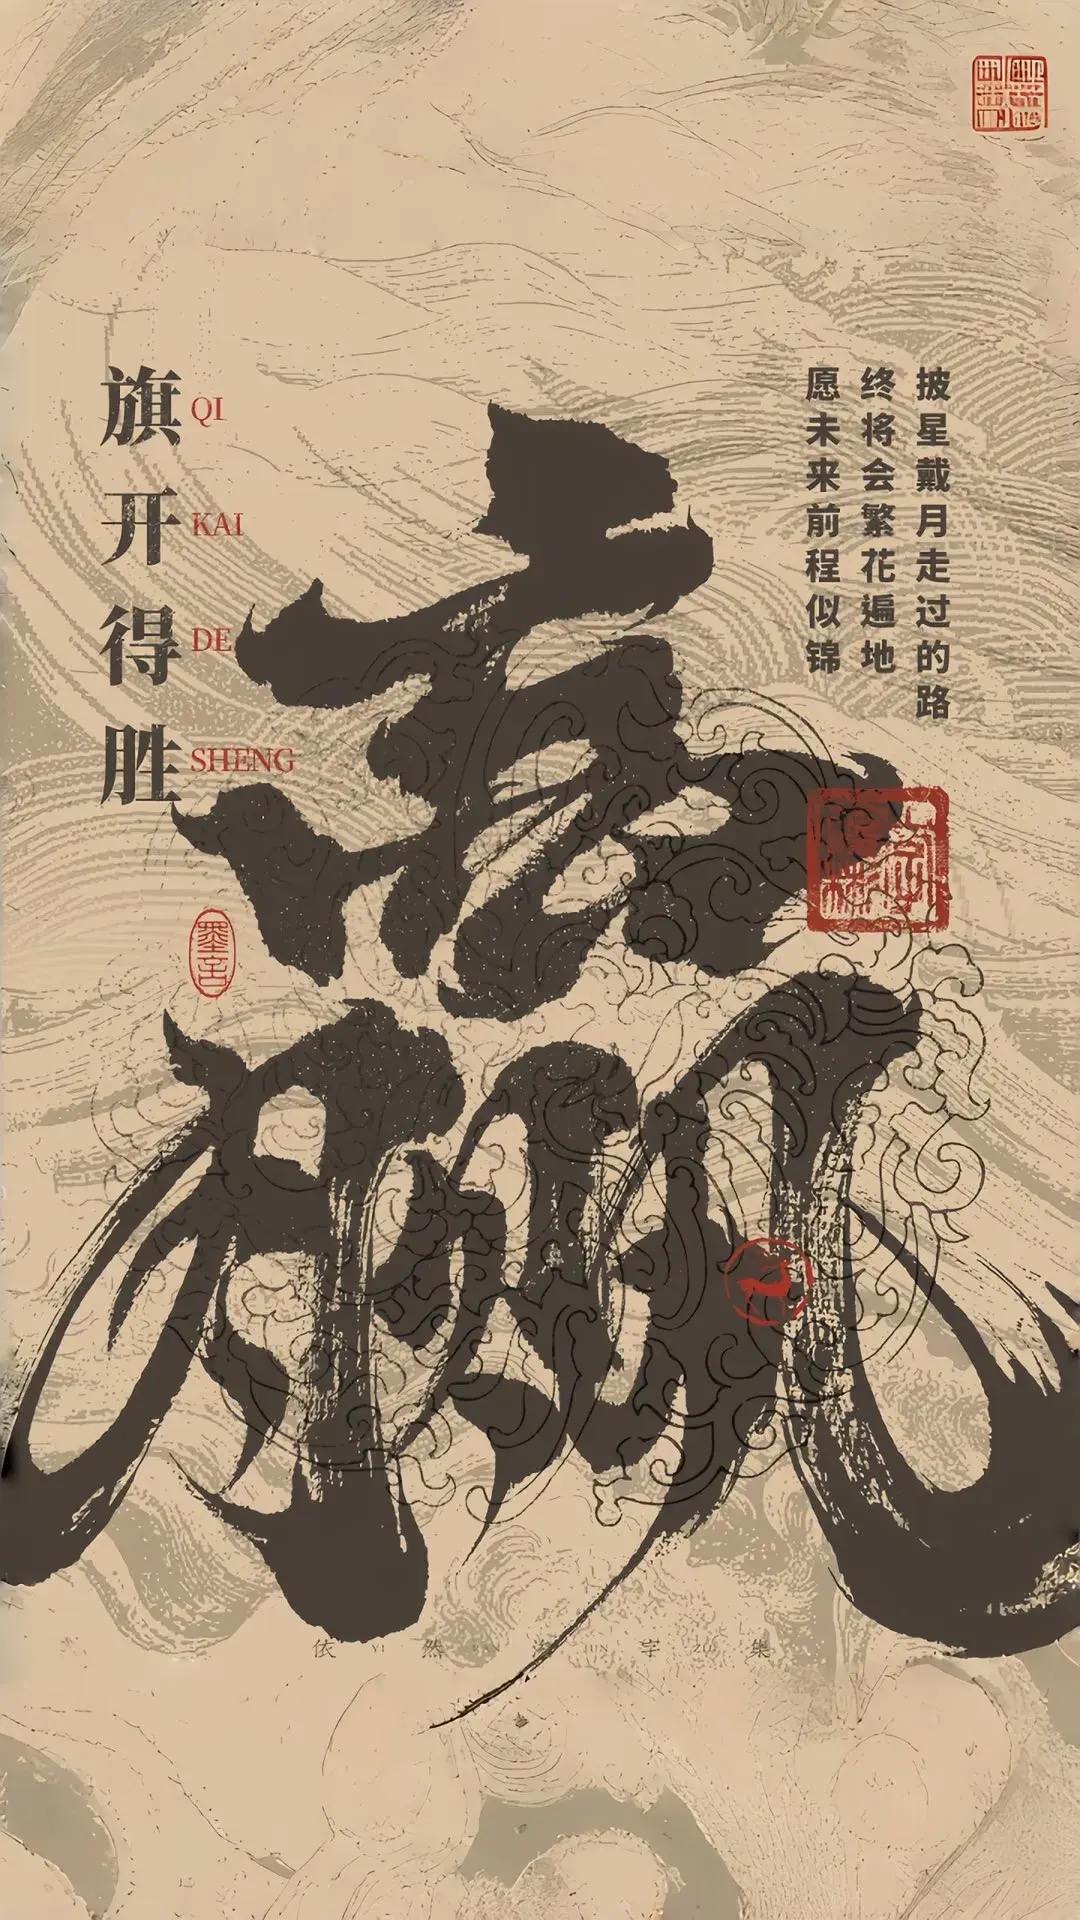 披星戴月走过的路
终将会繁花遍地
愿未来前程似锦
旗开得胜
QI
KAI
DE
SHENG
赢
墨言
依 然 字 集